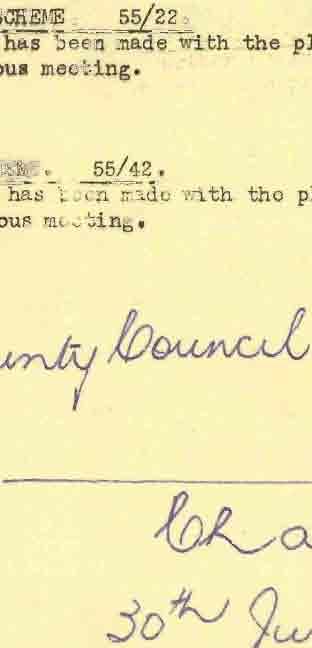 SCHEME 55/22.
has been made with the pl
ous meeting.
EME. 55/42.
has been made with the pl
ous meeting.
unty Council
Cha
30th Ju